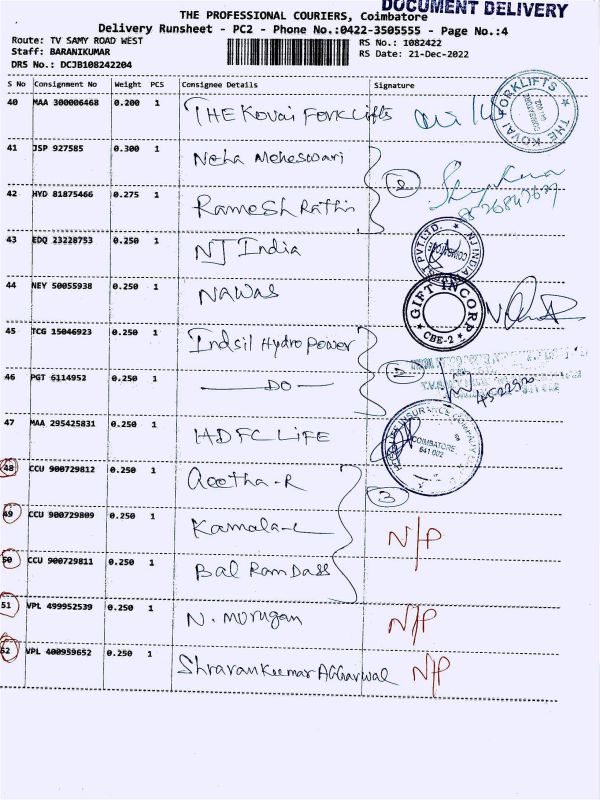 DOCUMENT DELIVERY
THE PROFESSIONAL COURIERS, Coimbatore
Delivery Runsheet - PC2 - Phone No.:0422-3505555 - Page No.:4
Route: TV SAMY ROAD WEST
RS No.: 1082422
Staff: BARANIKUMAR
RS Date: 21-Dec-2022
DRS No.: DCJB108242204
S No Consignment No Weight PCS Consignee Details Signature
40 MAA 300006468 0.200 1 THE Kovai Forklifts
THE KOVAI FORKLIFTS
41 JSP 927585 0.300 1 Neha Meheswari
2
42 HYD 81875466 0.275 1 Ramesh Rathi
43 EDQ 23228753 0.250 1 NJ India
NJ INDIA PVT.LTD.
44 NEY 50055938 0.250 1 Nawas
GIFT INCORP
CBE-2
45 TCG 15046923 0.250 1 Indsil Hydro Power
46 PGT 6114952 0.250 1 — DO —
47 MAA 295425831 0.250 1 HDFC LIFE
INSURANCE COMPANY
COIMBATORE
641 002
48 CCU 900729812 0.250 1 Geetha-R
3
49 CCU 900729809 0.250 1 Kamala-L N/P
50 CCU 900729811 0.250 1 Bal Ram Dass
51 VPL 499952539 0.250 1 N. Murugan N/P
52 VPL 400959652 0.250 1 Shravan Kumar Aggarwal N/P